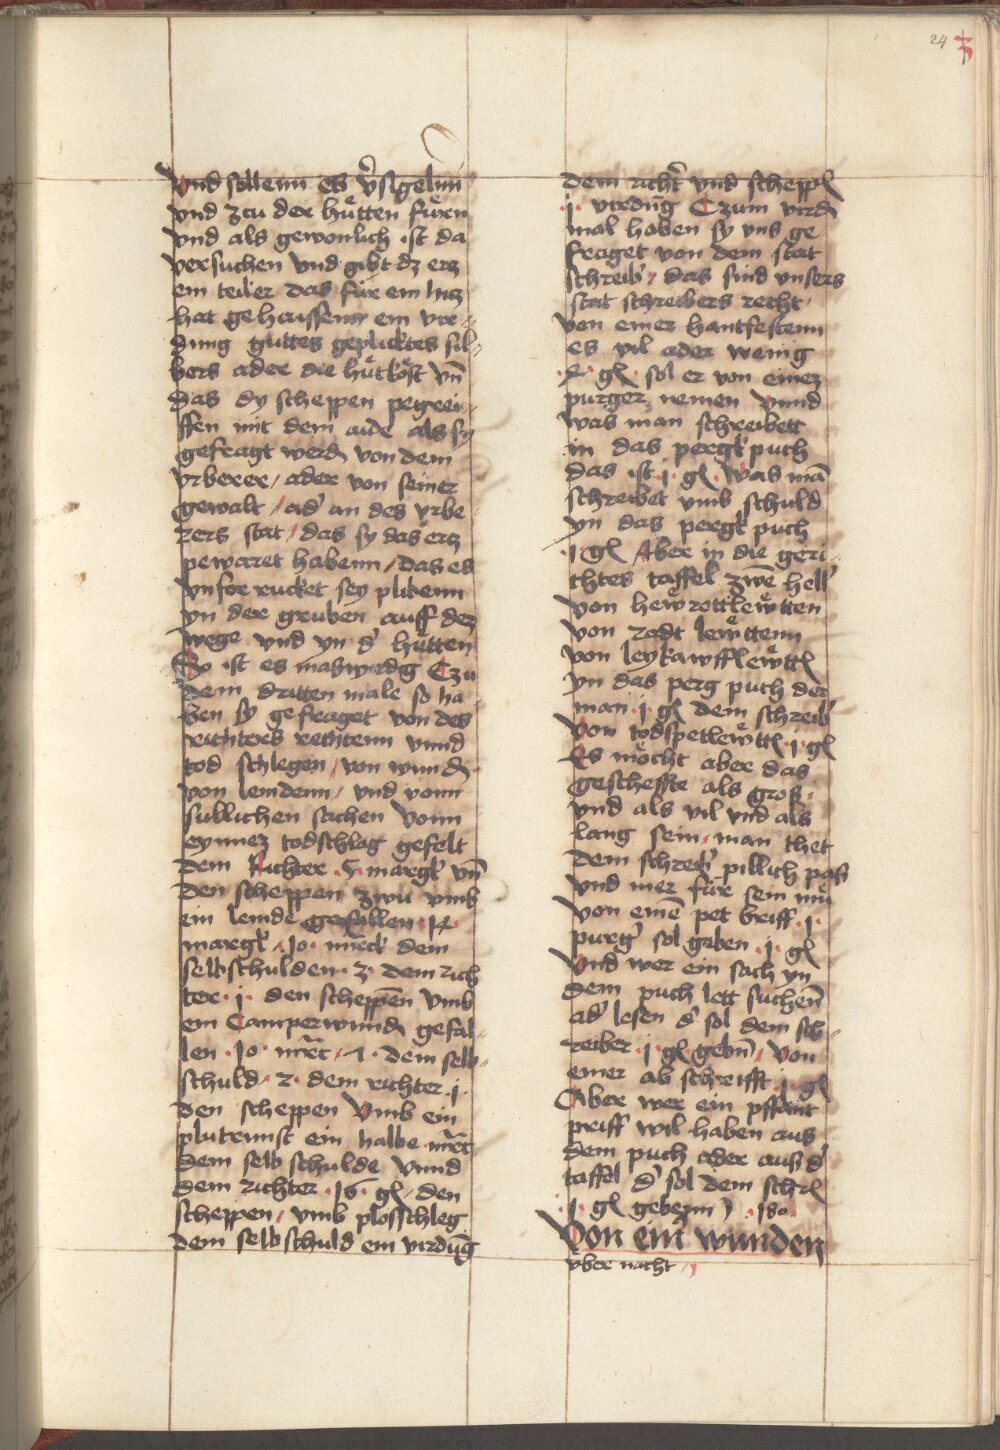 24
Vnd sollenn es v̾sigelnn
vnd zcu der hůtten fůren
vnd als gewonlich ist da
versuchen vnd gibt dz ercz
ein teiler das fůr ein hicz
hat gehaissenn ein vir⸗
dung guttes geplicktes sil⸗
bers ader die hůtkost vn̄
das dy scheppen pegrei⸗
ffen mit dem aide als sy
gefragt werdn̄ von dem
vrberer / ader von seiner
gewalt / ad̾ an des vrbe⸗
rers stat / das sy das ercz
pewaret habenn / das es
vnforrucket sey plibenn
yn der gruben auff der
wege vnd yn d̾ hůtten
So ist es maswirdig Czu
dem dritten male so ha⸗
ben sy gefraget von des
richters rechtenn vnnd
tod schlegen / von wundn̄
von lemdenn / vnd vonn
sullichen sachen Vonn
eynnez todschlag gefelt
dem Richter ·5· margk vn̄
den scheppen zwu vmb
ein lemde gefallen ·14·
margk ·10· mr̄ck dem
selbschulden ·3· dem rich
ter ·j· den scheppēn Vmb
ein Camperwundn̄ gefal⸗
len ·10· mr̄ct ·7· dem selb⸗
schuld ·2· dem richter ·j·
den scheppen Vmb ein
plutrunst ein halbe mr̄ct
dem selb schulde Vnnd
dem richter ·16· gl̄ / den
scheppen / vmb plosschleg
dem selb schuld ein virdūg
dem richt̾ vnd schepp̄
·j· virdūg Czum vird̄
mal haben sy vns ge⸗
fraget von dem stat
schreib̾ / das sind vnsers
stat schreibers recht /
von einer hantfestenn
es vil ader wenig
·4· gl̄ sol er von einez
purger nemen Vnnd
was man schreibett
in das pergk puch
das ist ·j· gl̄ Was mā
schreibet vmb schuld
yn das pergk puch
·j gl̄ Aber in die geri⸗
chtes taffel zwē hell̾
von hewrettlewtten
von radt lewttenn
von leykawfflewttn̄
yn das perg puch der
man ·j· gl̄ dem schreib̾
Von todspetlewttn̄ ·j· gl̄
Es mocht aber das
gescheffte als gros
vnd als vil vnd als
lang sein / man thet
dem schreib̾ pillich pas
vnd mer fůr sein mů
Von einē pet briff ·j·
purg̾ sol geben ·j· gl̄
Vnd wer ein sach yn
dem puch lett suchen̄
ad̾ lesen d̾ sol dem sch⸗
reiber ·j· gl̄ gebn̄ / Von
einer ab schrifft ·j· gl̄
Aber wer ein pffant
priff wil haben aus
dem puch ader aus d̾
taffel d̾ sol dem schr̄
·j· gl̄ gebenn ·
Von ein̄ wunden
vber nacht /